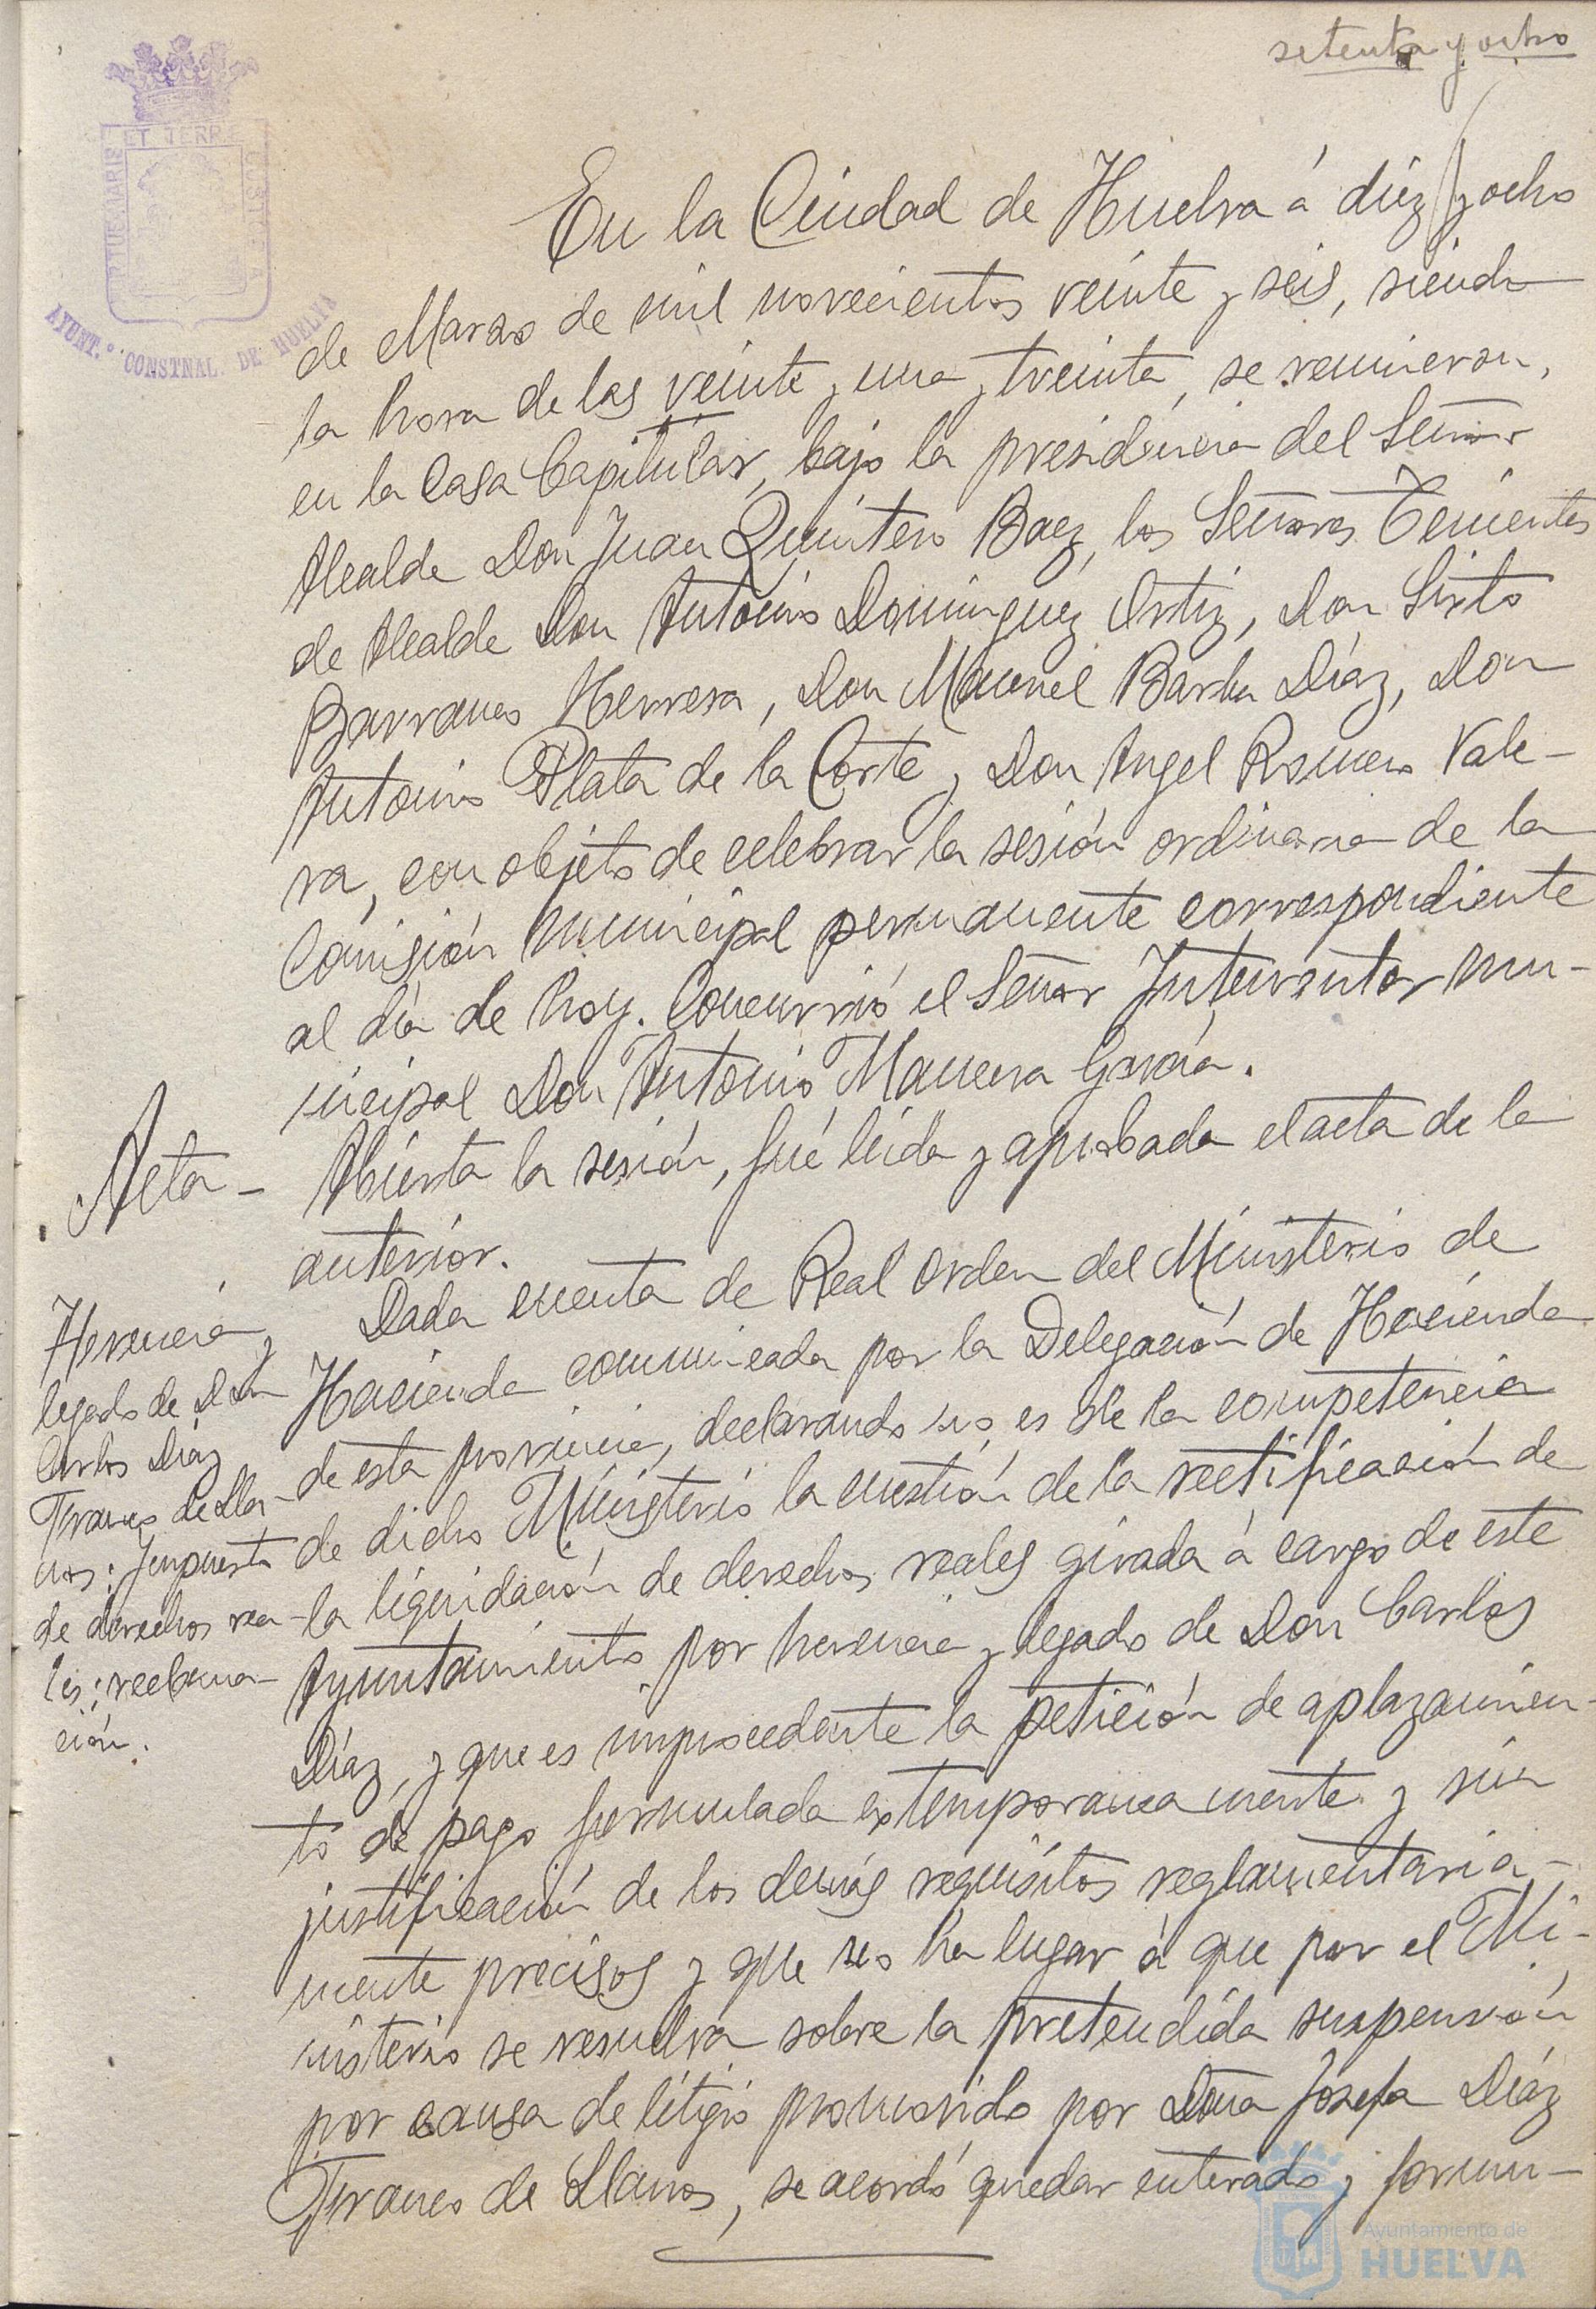 setenta y ocho
ET TERRE
PORTUS MARIS
CUSTODIA
AYUNT.º CONSTNAL. DE HUELVA
En la Ciudad de Huelva á diez y ocho
de Marzo de mil novecientos veinte y seis, siendo
la hora de las veinte y una y treinta, se reunieron,
en la Casa Capitular, bajo la presidencia del Señor
Alcalde Don Juan Quintero Baez, los Señores Tenientes
de Alcalde Don Antonio Dominguez Ortiz, Don Sixto
Barranco Herrera, Don Manuel Barba Díaz, Don
Antonio Plata de la Corte y Don Angel Romero Vale-
ra, con objeto de celebrar la sesión ordinaria de la
Comisión Municipal permanente correspondiente
al día de hoy. Concurrió el Señor Interventor mu-
nicipal Don Antonio Mancera García.
Acta-
Abierta la sesión, fué leida y aprobada el acta de la
anterior.
Herencia y
legado de Don
Carlos Díaz
Franco de Lla-
nos: Impuesto
de derechos rea-
les; reclama-
ción.
Dada cuenta de Real Orden del Ministerio de
Hacienda comunicada por la Delegación de Hacienda
de esta provincia, declarando no es de la competencia
de dicho Ministerio la cuestión de la rectificación de
la liquidación de derechos reales girada á cargo de este
Ayuntamiento por herencia y legado de Don Carlos
Díaz, y que es improcedente la petición de aplazamien-
to de pago formulada extemporaneamente y sin
justificación de los demás requisitos reglamentaria-
mente precisos y que no ha lugar á que por el Mi-
nisterio se resuelva sobre la pretendida suspensión
por causa de litigio promovido por Doña Josefa Díaz
Franco de Llanos, se acordó quedar enterado y formu-
Ayuntamiento de
HUELVA